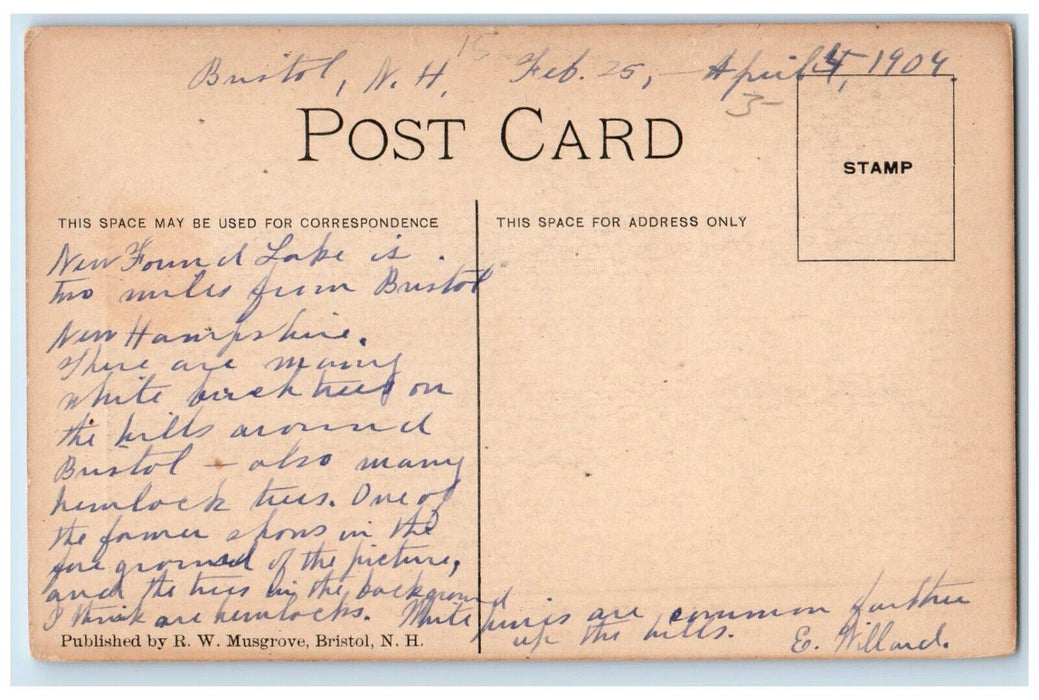 15
Bristol, N. H. Feb. 25, – April 4, 1909.
3
POST CARD
STAMP
THIS SPACE MAY BE USED FOR CORRESPONDENCE
THIS SPACE FOR ADDRESS ONLY
New Found Lake is
two miles from Bristol
New Hampshire.
There are many
white birch trees on
the hills around
Bristol – also many
hemlock trees. One of
the former shows in the
fore ground of the picture,
and the trees in the background
I think are hemlocks. White pines are common farther
up the hills.
E. Willard.
Published by R. W. Musgrove, Bristol, N. H.